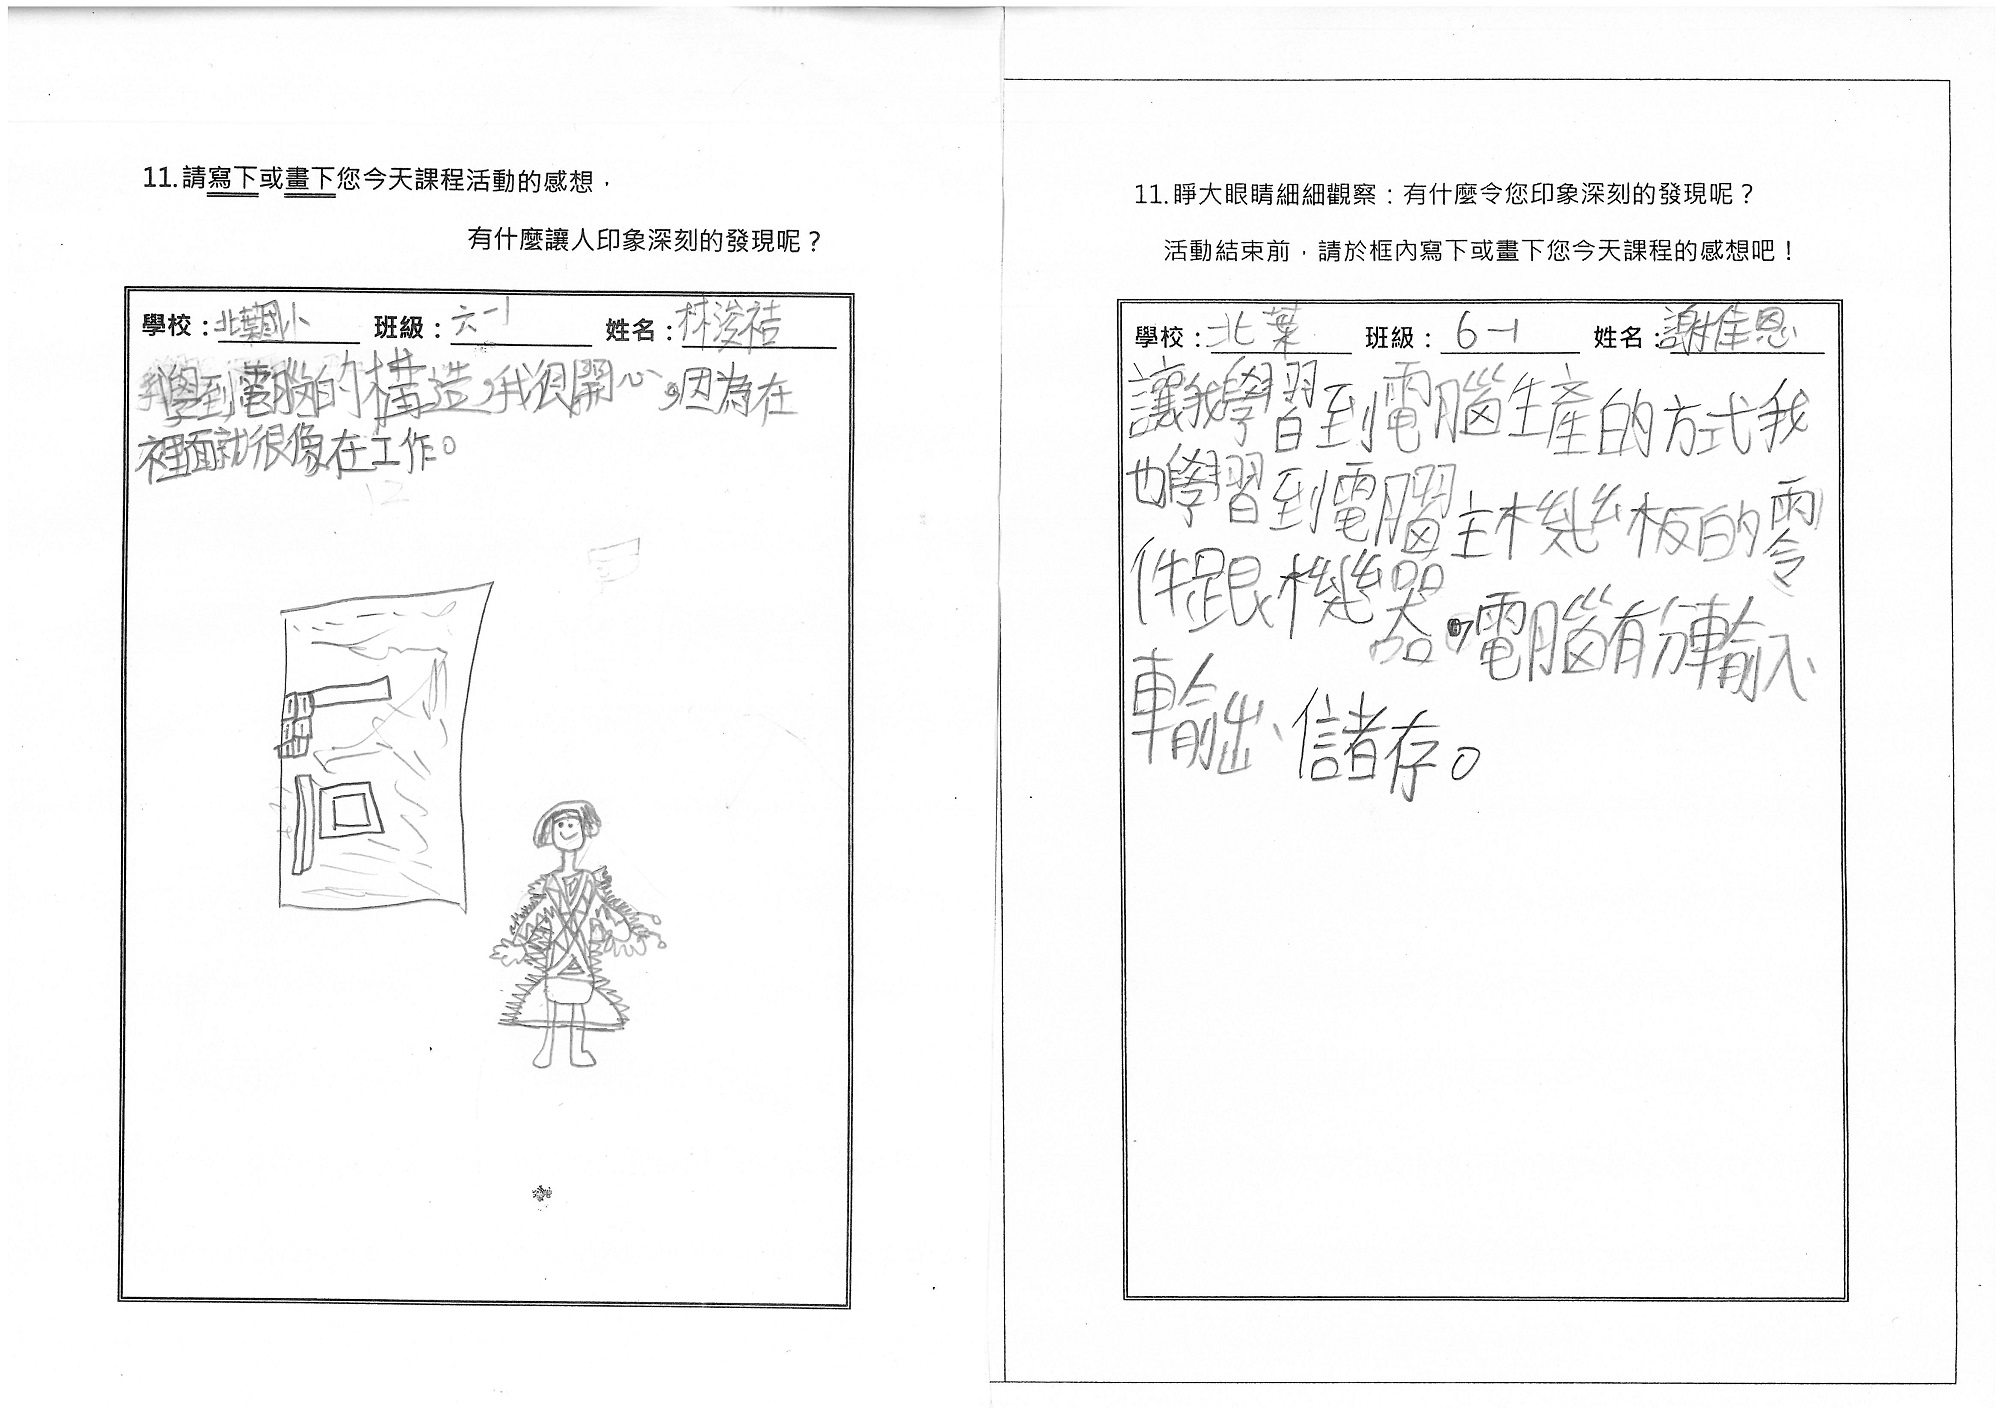 11.請寫下或畫下您今天課程活動的感想，
有什麼讓人印象深刻的發現呢？
學校：北葉國小 班級：六一1 姓名：林浚祜
學到電腦的構造，我很開心，因為在
裡面就很像在工作。
11.睜大眼睛細細觀察：有什麼令您印象深刻的發現呢？
活動結束前，請於框內寫下或畫下您今天課程的感想吧！
學校：北葉 班級：6-1 姓名：謝佳恩
讓我學習到電腦生產的方式我
也學習到電腦主機板的零
件跟機器，電腦有分輸入、
輸出、儲存。